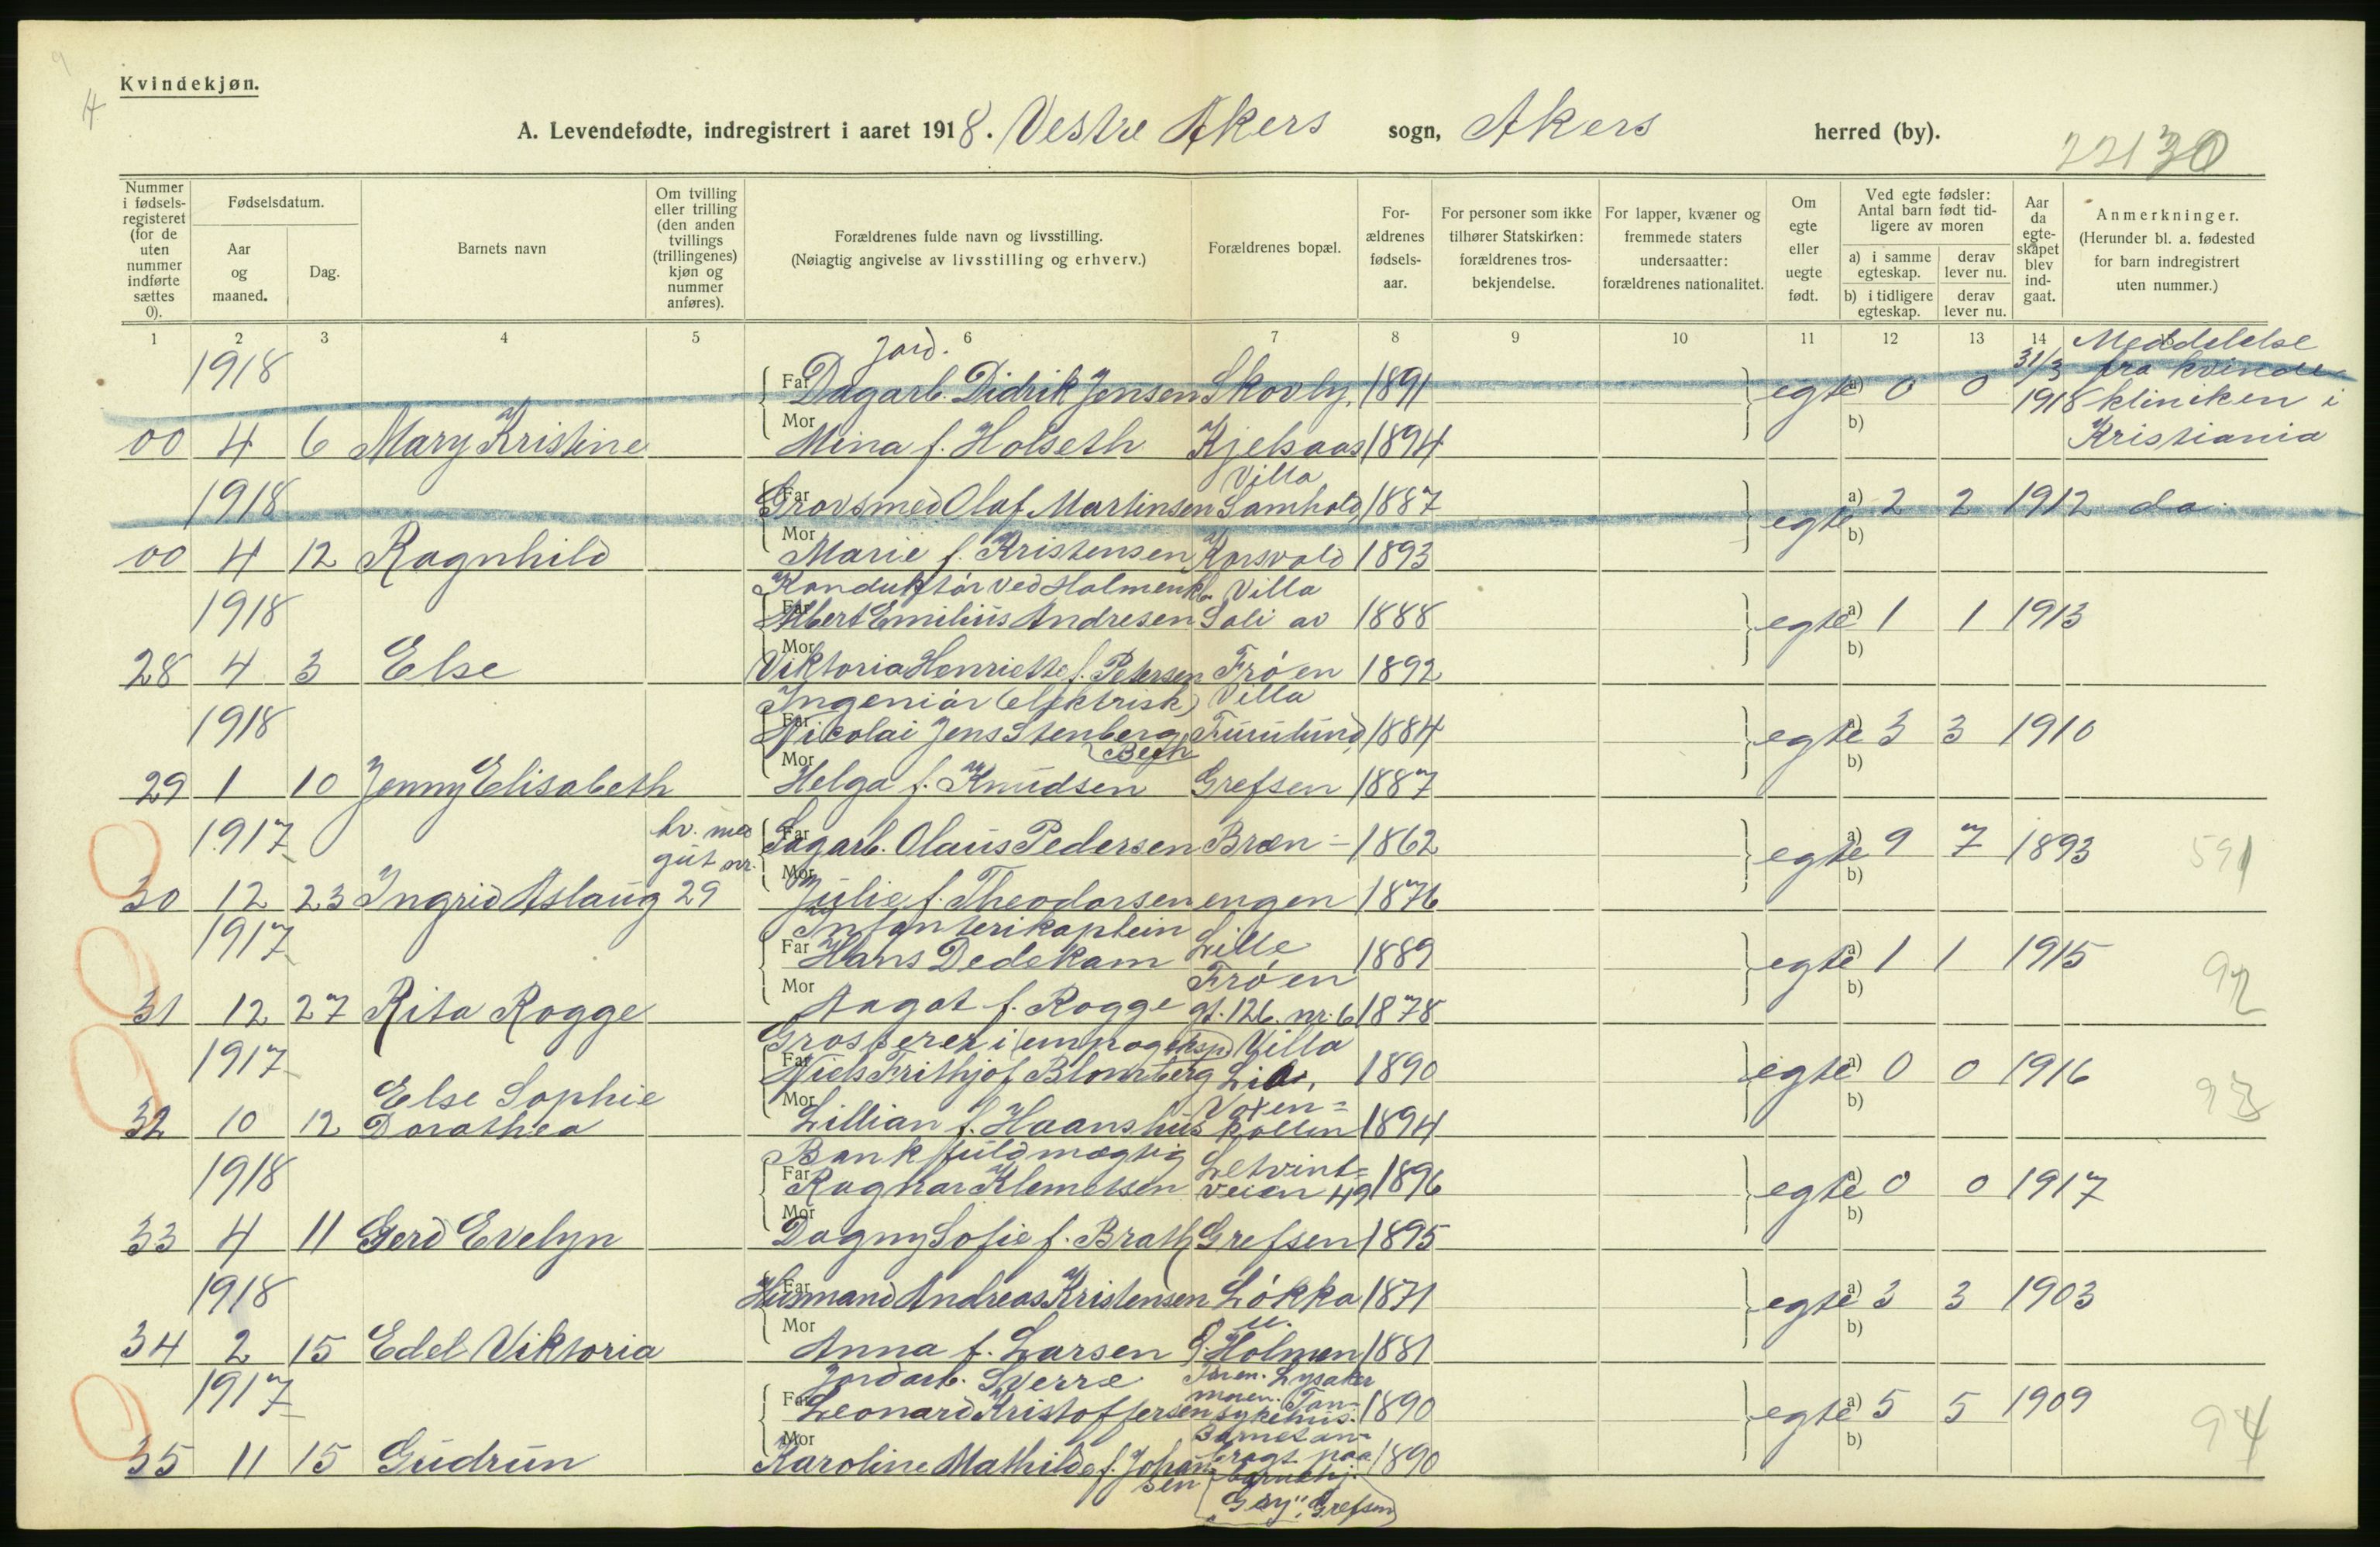 Kvindekjøn.
A. Levendefødte, indregistrert i aaret 1918. Vestre Akers sogn, Akers herred (by).
22130
Nummer i fødsels-registeret (for de uten nummer indførte sættes 0).
Fødselsdatum.
Aar og maaned.
Dag.
Barnets navn
Om tvilling eller trilling (den anden tvillings (trillingenes) kjøn og nummer anføres).
Forældrenes fulde navn og livsstilling.
(Nøiagtig angivelse av livsstilling og erhverv.)
Forældrenes bopæl.
For-ældrenes fødsels-aar.
For personer som ikke tilhører Statskirken: forældrenes tros-bekjendelse.
For lapper, kvæner og fremmede staters undersaatter: forældrenes nationalitet.
Om egte eller uegte født.
Ved egte fødsler: Antal barn født tid-ligere av moren
a) i samme egteskap. derav lever nu.
b) i tidligere egteskap. derav lever nu.
Aar da egte-skapet blev ind-gaat.
Anmerkninger.
(Herunder bl. a. fødested for barn indregistrert uten nummer.)
1 2 3 4 5 6 7 8 9 10 11 12 13 14
1918 Jord. Meddelelse
Far Dagarb. Didrik Jensen Skovly, 1891 egte a) 0 0 31/3 fra kvinde
1918 kliniken i
00 4 6 Mary Kristine Mor Mina f. Holseth Kjelsaas 1894 b) Kristiania
Villa
1918 Far Grovsmed Olaf Martinsen Samhold, 1887 egte a) 2 2 1912 do.
00 4 12 Ragnhild Mor Marie f. Kristensen Korsvold 1893 b)
Konduktør ved Holmenkb. Villa
1918 Far Albert Emilius Andresen Soli av 1888 egte a) 1 1 1913
28 4 3 Else Mor Viktoria Henriette f. Petersen Frøen 1892 b)
Ingeniør (elektrisk) Villa
1918 Far Nicolai Jens Stenberg Furulund, 1884 egte a) 3 3 1910
Bech
29 1 10 Jenny Elisabeth Mor Helga f. Knudsen Grefsen 1887 b)
1917 tv. med gut nr. Far Sagarb. Olaus Pedersen Bræn- 1862 egte a) 9 7 1893 591
30 12 23 Ingrid Aslaug 29 Mor Julie f. Theodorsen engen 1876 b)
Infanterikaptein Lille
1917 Far Hans Dedekam Frøen 1889 egte a) 1 1 1915 92
31 12 27 Rita Rogge Mor Aagot f. Rogge gt. 126. nr. 6 1878 b)
Grosserer i (emp og eksp) Villa
1917 Far Niels Frithjof Blomberg Lia, 1890 egte a) 0 0 1916 93
Else Sophie Voxen=
32 10 12 Dorathea Mor Lillian f. Haanshus kollen 1894 b)
Bankfuldmægtig Setvint=
1918 Far Ragnar Klemetsen veien 49 1896 egte a) 0 0 1917
33 4 11 Gerd Evelyn Mor Dagny Sofie f. Brath Grefsen 1895 b)
1918 Far Husmand Andreas Kristensen Løkka 1871 egte a) 3 3 1903
u.
34 2 15 Edel Viktoria Mor Anna f. Larsen Ø. Holmen 1881 b)
Jordarb. Sverre Faren. Lysaker
moren.
1917 Far Leonard Kristoffersen sykehus. 1890 egte a) 5 5 1909 94
Barnet an=
35 11 15 Gudrun Mor Karoline Mathilde f. Johan= bragt paa 1890 b)
sen barnehj.
Grefsen